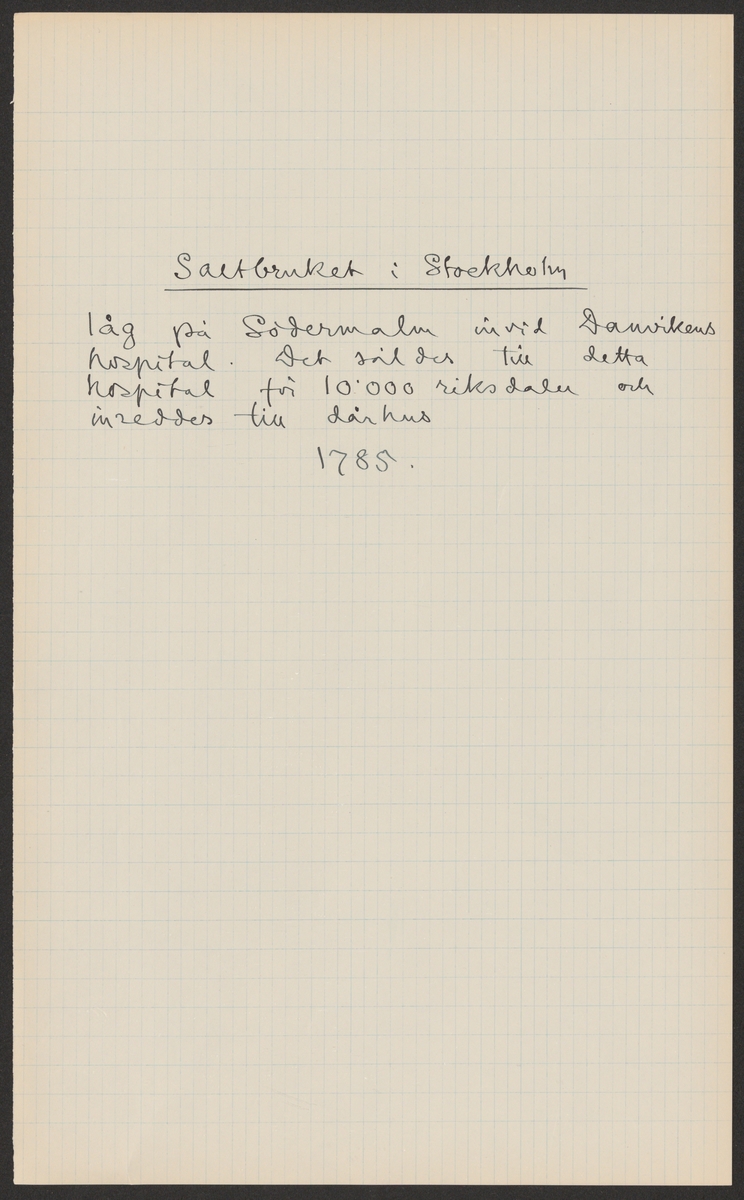 Saltbruket i Stockholm
låg på Södermalm invid Danvikens
hospital. Det såldes till detta
hospital för 10'000 riksdaler och
inreddes till dårhus
1785.